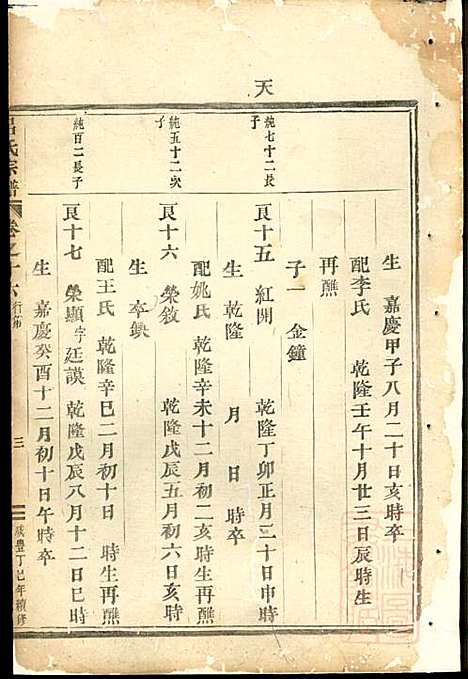 天
生　嘉慶甲子八月二十日亥時卒
配李氏　乾隆壬午十月廿三日辰時生
再醮
子一　金鐘
純七十二長子
良十五　紅開　乾隆丁卯正月三十日申時
生　乾隆　月　日　時卒
配姚氏　乾隆辛未十二月初二亥時生再醮
純五十二次子
良十六　榮敘　乾隆戊辰五月初六日亥時
生　卒缺
配王氏　乾隆辛巳二月初十日　時生再醮
純百二長子
良十七　榮顯字廷謨　乾隆戊辰八月十二日巳時
生　嘉慶癸酉十二月初十日午時卒
呂氏宗譜　卷之十六　行第　三　咸豐丁巳年續修